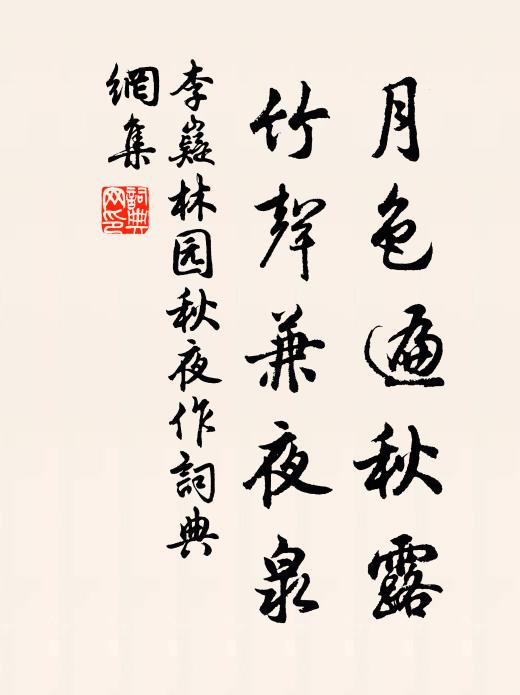 月色遍秋露
竹聲兼夜泉
李嶷林园秋夜作詞典
網集
詞典网印